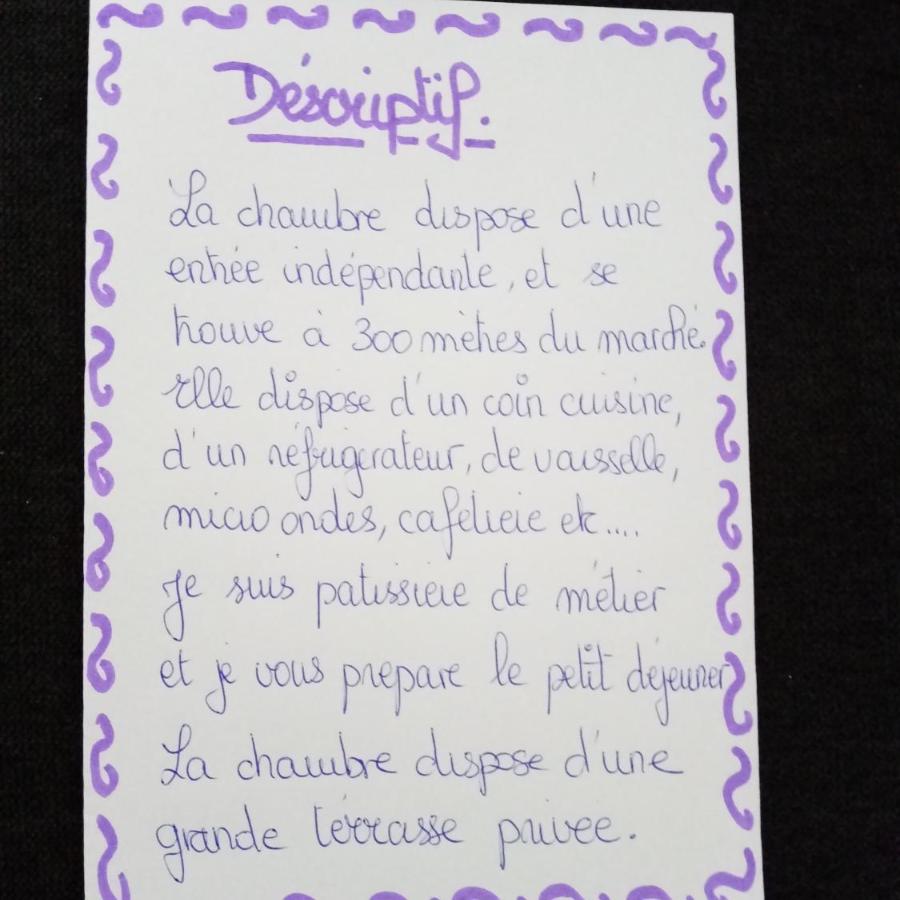 Déscriptif.
La chambre dispose d'une
entrée indépendante, et se
trouve à 300 mètres du marché.
Elle dispose d'un coin cuisine,
d'un réfrigerateur, de vaisselle,
micro ondes, cafetiere etc....
Je suis patissiere de métier
et je vous prepare le petit dejeuner
La chambre dispose d'une
grande térrasse privee.